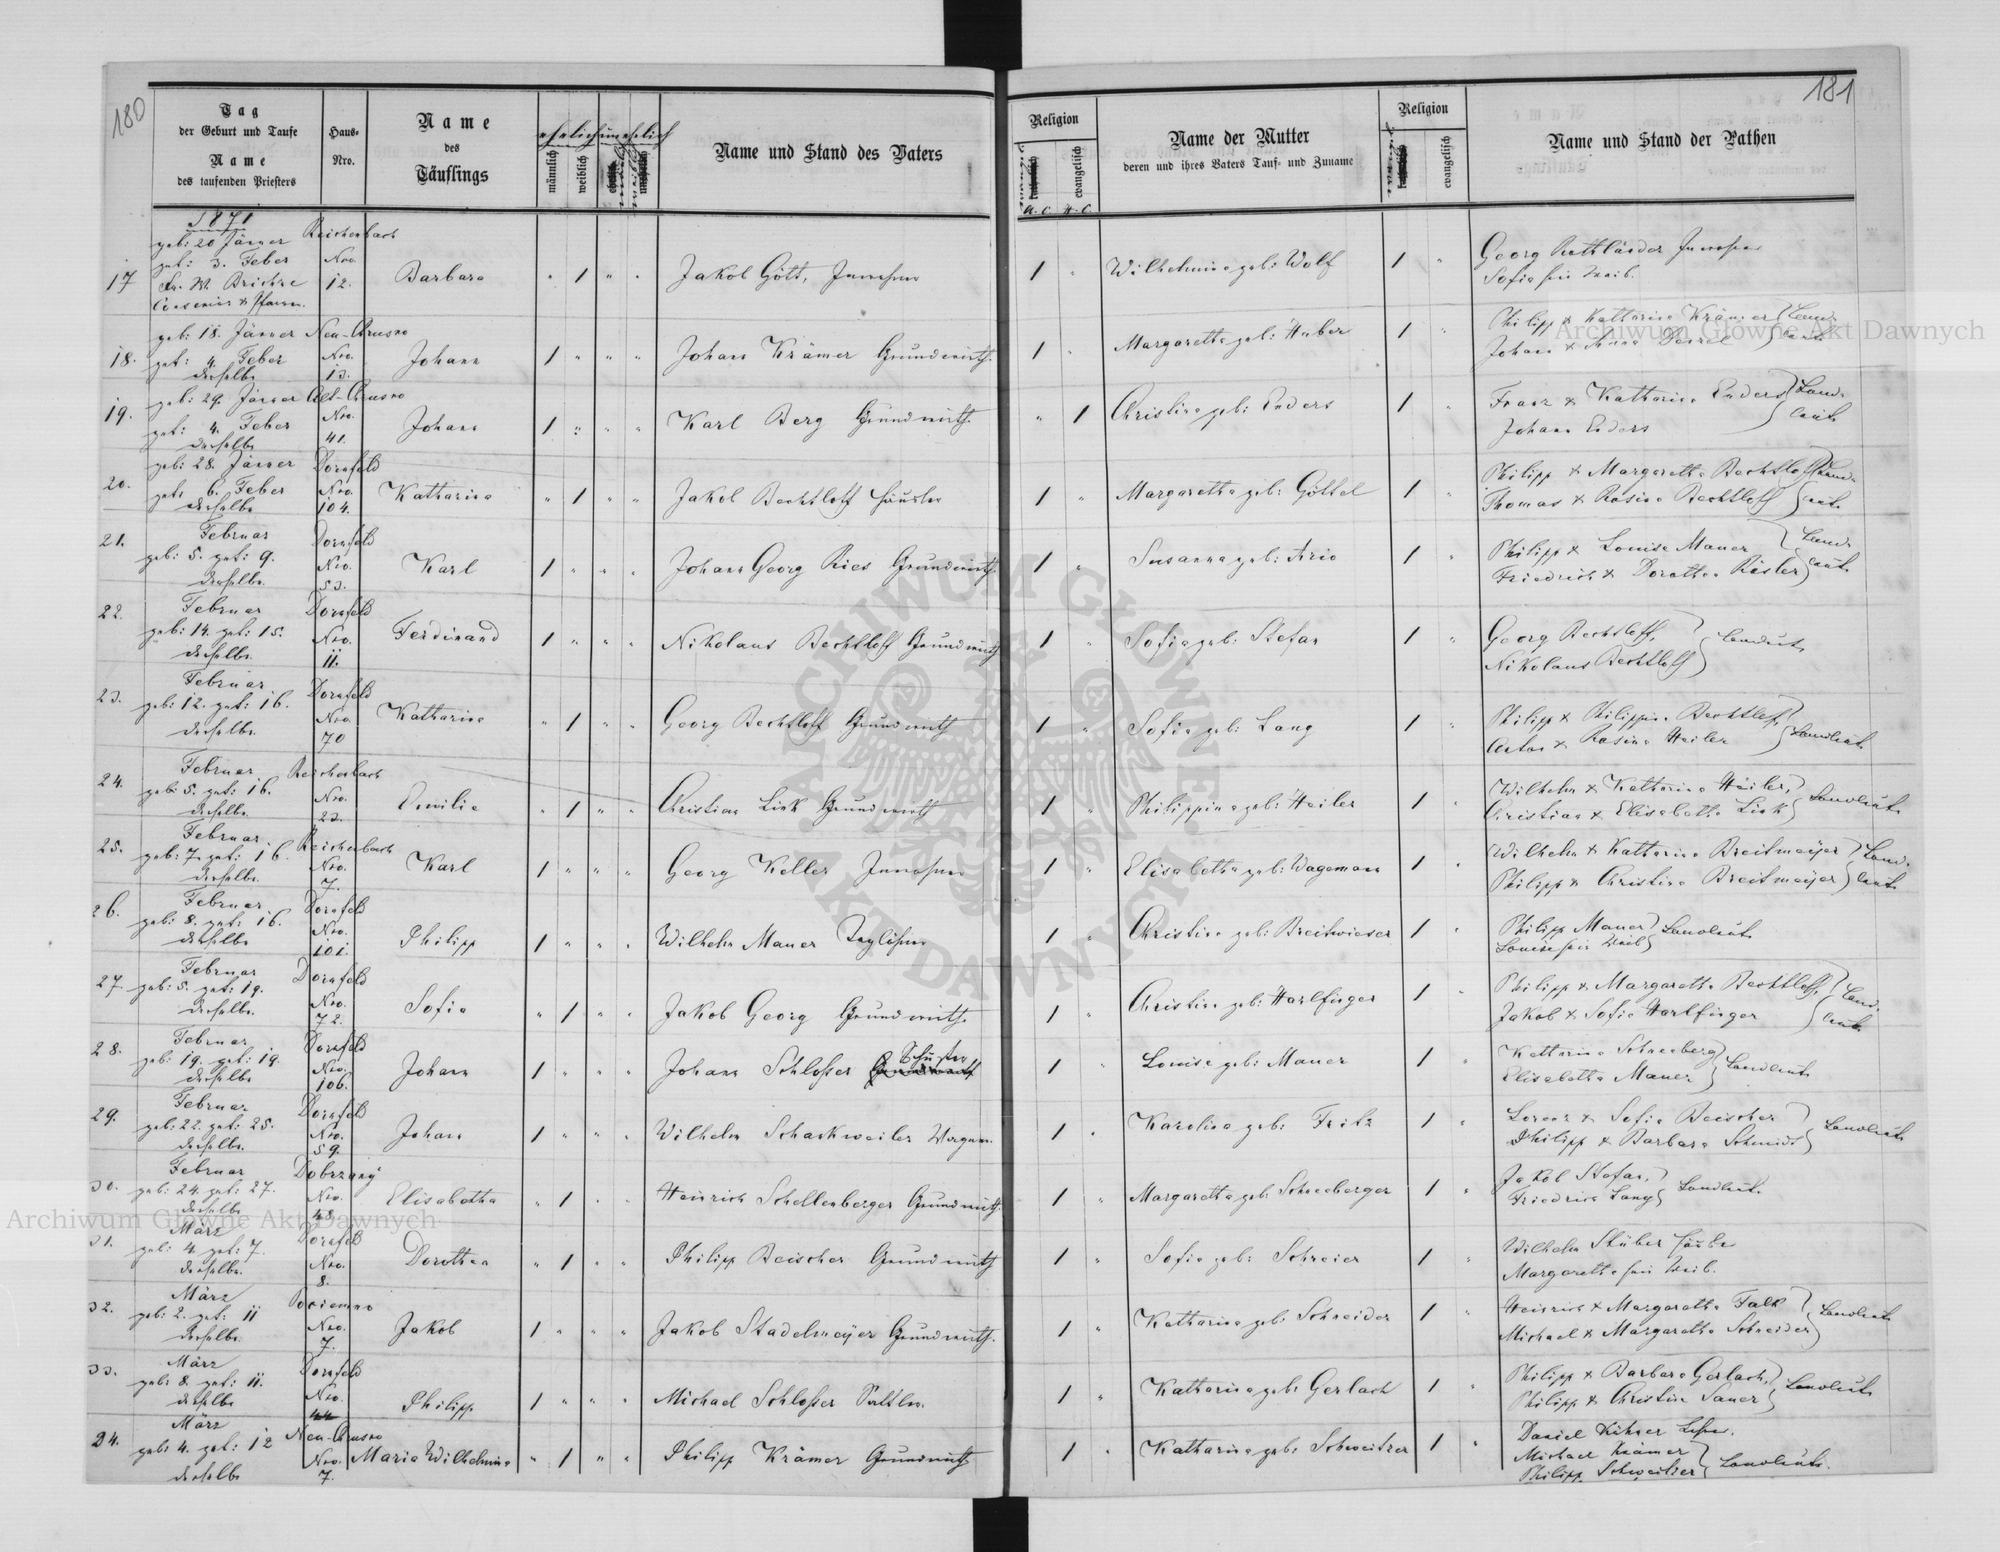 180
Tag
der Geburt und Taufe
Name
des taufenden Priesters
Haus-
Nro.
Name
des
Täuflings
ehelich unehelich
männlich
weiblich
Name und Stand des Vaters
181
Religion
evangelisch
A. C. H. C.
Name der Mutter
deren und ihres Vaters Tauf- und Zuname
Religion
evangelisch
Name und Stand der Pathen
1871
17
geb: 20 Jänner Reichenbach
get: 3. Feber Nro. 12.
Barbara
" 1 " "
Jakob Gött,
1 "
Wilhelmine geb: Wolf
1 "
Georg Rothländer
Sofia sein Weib.
18.
geb: 18. Jänner Neu-Chrusno
get: 4. Feber Nro. 13.
derselbe
Johann
1 " " "
Johann Krämer Grundwirth.
1 "
Margaretha geb: Huber
1 "
Philipp & Katharina Krämer Land-
Johann & Anna leute
19.
geb: 29. Jänner Alt-Chrusno
get: 4. Feber Nro. 41.
derselbe
Johann
1 " " "
Karl Berg Grundwirth.
" 1
Christina geb: Enders
1 "
Franz & Katharina Enders Land-
Johann Enders leute
20.
geb: 28. Jänner Dornfeld
get: 6. Feber Nro. 104.
derselbe
Katharina
" 1 " "
Jakob Bechtloff Häusler
1 "
Margaretha geb: Göttel
1 "
Philipp & Margaretha Bechtloff Land-
Thomas & Rosina Bechtloff leute
21.
Februar Dornfeld
geb: 5. get: 9. Nro. 53.
derselbe.
Karl
1 " " "
Johann Georg Ries Grundwirth.
1 "
Susanna geb: Ario
1 "
Philipp & Louise Mauer Land-
Friedrich & Dorothea Rister leute
22.
Februar Dornfeld
geb: 14. get: 15. Nro. 11.
derselbe.
Ferdinand
1 " " "
Nikolaus Bechtloff Grundwirth
1 "
Sofia geb: Stefan
1 "
Georg Bechtloff,
Nikolaus Bechtloff Landleute
23.
Februar Dornfeld
geb: 12. get: 16. Nro. 70
derselbe.
Katharina
" 1 " "
Georg Bechtloff Grundwirth
1 "
Sofia geb: Lang
1 "
Philipp & Philippine Bechtloff,
Anton & Rosina Heiler Landleute
24.
Februar Reichenbach
geb: 5. get: 16. Nro. 23.
derselbe.
Emilie
" 1 " "
Christian Link Grundwirth
1 "
Philippina geb: Heiler
1 "
Wilhelm & Katharina Heiler,
Christian & Elisabetha Link Landleute
25.
Februar Reichenbach
geb: 7. get: 16. Nro. 7.
derselbe.
Karl
1 " " "
Georg Keller
1 "
Elisabetha geb: Wagemann
1 "
Wilhelm & Katharina Breitmeijer Land-
Philipp & Christina Breitmeijer leute
26.
Februar Dornfeld
geb: 8. get: 16. Nro. 101.
derselbe
Philipp
1 " " "
Wilhelm Mauer Taglöhner
1 "
Christina geb: Breitwieser
1 "
Philipp Mauer
Louise sein Weib Landleute
27.
Februar Dornfeld
geb: 5. get: 19. Nro. 72.
derselbe.
Sofia
" 1 " "
Jakob Georg Grundwirth.
1 "
Christina geb: Harlfinger
1 "
Philipp & Margaretha Bechtloff, Land-
Jakob & Sofia Harlfinger leute
28.
Februar Dornfeld
geb: 19. get: 19. Nro. 106.
derselbe
Johann
1 " " "
Johann Schlosser Schuster
1 "
Louise geb: Mauer
1 "
Katharina Schneeberg
Elisabetha Mauer Landleute
29.
Februar Dornfeld
geb: 22. get: 25. Nro. 59.
derselbe.
Johann
1 " " "
Wilhelm Schankweiler Wagner.
1 "
Karolina geb: Fritz
1 "
Lorenz & Sofia Beischer
Philipp & Barbara Schmidt Landleute
30.
Februar Dobrzany
geb: 24. get: 27. Nro. 48.
derselbe
Elisabetha
" 1 " "
Heinrich Schellenberger Grundwirth.
1 "
Margaretha geb: Schneeberger
1 "
Jakob Stefan,
Friedrich Lang Landleute.
31.
März Dornfeld
geb: 4. get: 7. Nro. 8.
derselbe.
Dorothea
" 1 " "
Philipp Beischer Grundwirth
1 "
Sofia geb: Schreier
1 "
Wilhelm Stüber
Margaretha sein Weib.
32.
März
geb: 2. get: 11 Nro. 7.
derselbe.
Jakob
1 " " "
Jakob Stadelmeijer Grundwirth.
1 "
Katharina geb: Schneider
1 "
Heinrich & Margaretha Falk
Michael & Margaretha Schneider Landleute
33.
März Dornfeld
geb: 8. get: 11. Nro. 44
derselbe
Philipp
1 " " "
Michael Schlosser Sattler.
1 "
Katharina geb: Gerlach
1 "
Philipp & Barbara Gerlach,
Philipp & Christina Sauer Landleute
34.
März Neu-Chrusno
geb: 4. get: 12 Nro. 7.
derselbe
Maria Wilhelmine
" 1 " "
Philipp Krämer Grundwirth
1 "
Katharina geb: Schweitzer
1 "
Daniel Kühner Lehrer.
Michael Krämer
Philipp Schweitzer Landleute.
Archiwum Główne Akt Dawnych
Archiwum Główne Akt Dawnych
ARCHIWUM GŁÓWNE AKT DAWNYCH